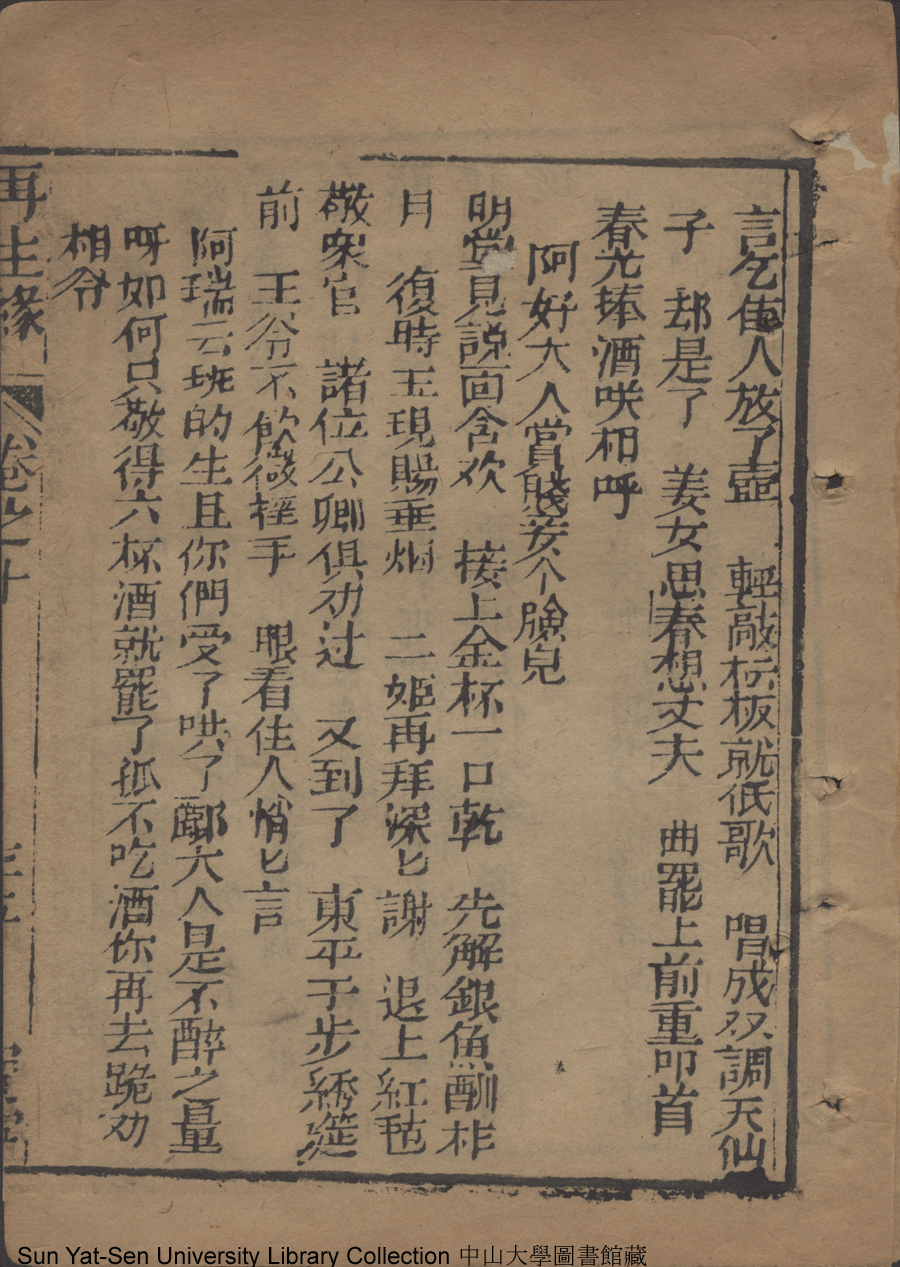 言乞隹人放了壺　輕敲枟板就低歌　唱成双調天仙
子　却是了　姜女思春想丈夫　曲罷上前重叩首
春光捧酒咲相呼
阿好大人賞賤妾个臉兒
明堂見説面含欢　接上金杯一口乾　先解銀魚酬柞
月　復時玉現賜垂烟　二姬再拜深匕謝　退上紅毡
敬衆官　諸位公卿俱劝过　又到了　東平千步綉筵
前　王爷不飲微揺手　眼看佳人悄匕言
阿瑞云班的生且你們受了哄了酈大人是不醉之量
呀如何只敬得六杯酒就罷了孤不吃酒你再去跪劝
相爷
再生緣　卷之十　三五　堂
Sun Yat-Sen University Library Collection 中山大學圖書館藏